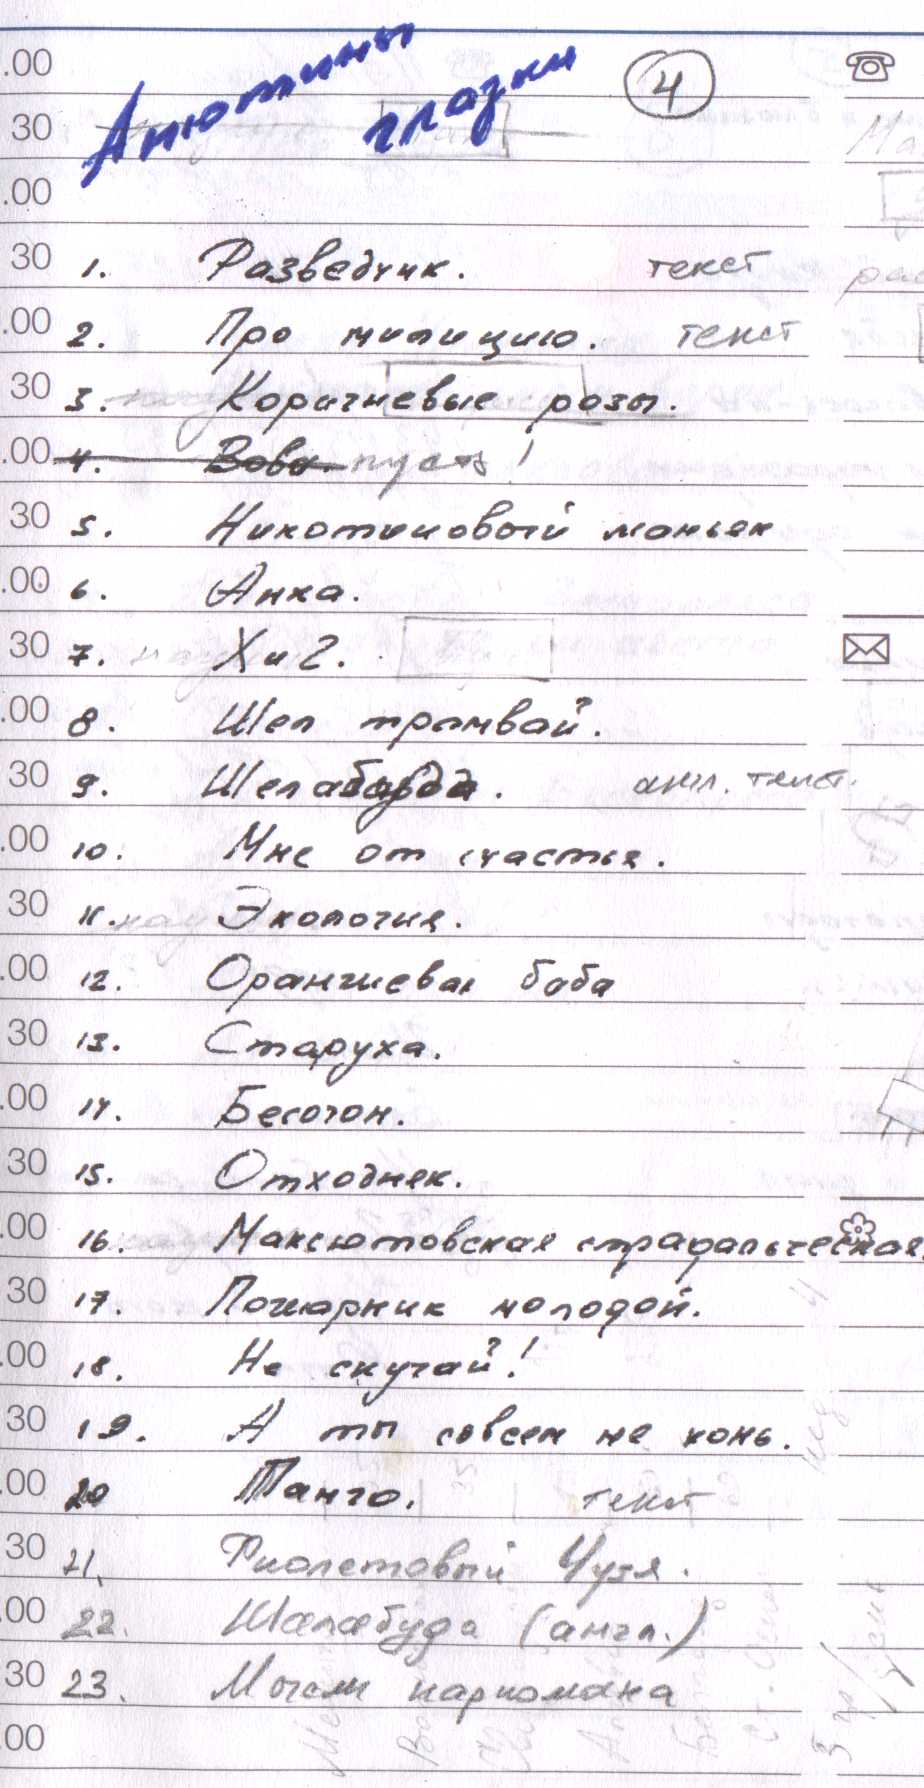 Анютины
глазки
4
.00
30
.00
30 1. Разведчик. текст
.00 2. Про милицию. текст
30 3. Коричневые розы.
.00 4. Вова пусть!
30 5. Никотиновый маньяк
.00 6. Анка.
30 7. Хи 2.
.00 8. Шел трамвай.
30 9. Шелабарда. англ. текст.
.00 10. Мне от счастья.
30 11. Экология.
.00 12. Оранжевая баба
30 13. Старуха.
.00 14. Бесогон.
30 15. Отходняк.
.00 16. Максютовская страдальческая.
30 17. Пожарник молодой.
.00 18. Не скучай!
30 19. А ты совсем не конь.
.00 20 Танго. текст
30 21. Фиолетовый Чузя.
.00 22. Шалабуда (англ.)
30 23. Мысли наркомана
.00